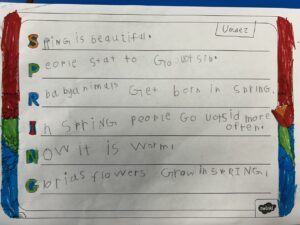 Umaez
SPRING is beautiful.
People stat to Go uot sid.
Rbabyanimals Get born in SPRING.
In SPRING people Go uotsid more
often.
NOW it is worm.
Glorias flowers Grow in SPRING.
twinkl